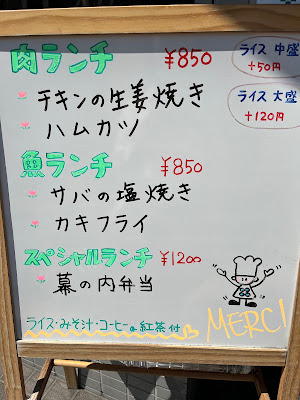 肉ランチ ¥850
ライス 中盛
+50円
チキンの生姜焼き
ライス 大盛
+120円
ハムカツ
魚ランチ ¥850
サバの塩焼き
カキフライ
スペシャルランチ ¥1200
幕の内弁当
ライス・みそ汁・コーヒーor紅茶付
MERCI